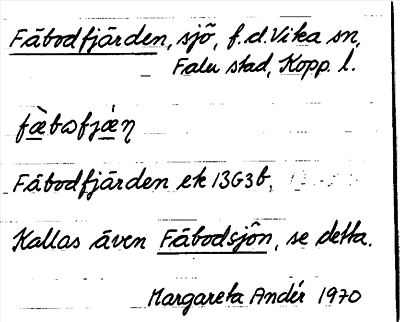 Fäbodfjärden, sjö, f.d. Vika sn,
Falu stad, Kopp. l.
fæ̀bωfjæ̀ṇ
Fäbodfjärden ek 13G3b,
Kallas även Fäbodsjön, se detta.
Margareta Andér 1970